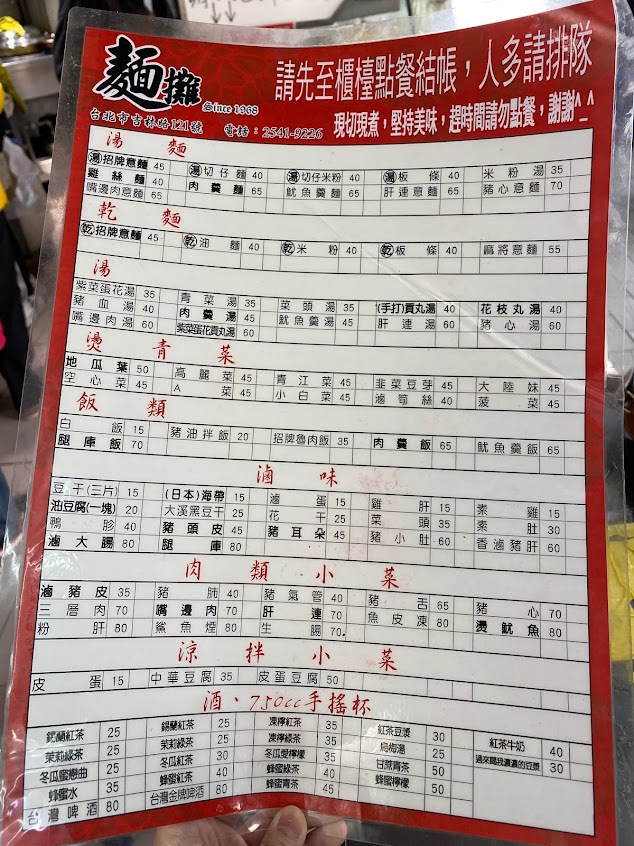 麵攤 Since 1988
請先至櫃檯點餐結帳，人多請排隊
台北市吉林路121號 電話：2541-9226
現切現煮，堅持美味，趕時間請勿點餐，謝謝^_^
湯麵
湯招牌意麵 45 湯切仔麵 40 湯切仔米粉 40 湯板條 40 米粉湯 35
雞絲麵 40 肉羹麵 65 魷魚羹麵 65 肝連意麵 65 豬心意麵 70
嘴邊肉意麵 65
乾麵
乾招牌意麵 45 乾油麵 40 乾米粉 40 乾板條 40 麻將意麵 55
湯
紫菜蛋花湯 35 青菜湯 35 菜頭湯 35 (手打)貢丸湯 40 花枝丸湯 40
豬血湯 40 肉羹湯 45 魷魚羹湯 45 肝連湯 60 豬心湯 60
嘴邊肉湯 60 紫菜蛋花貢丸湯 60
燙青菜
地瓜葉 50 高麗菜 45 青江菜 45 韭菜豆芽 45 大陸妹 45
空心菜 45 A菜 45 小白菜 45 滷筍絲 40 菠菜 45
飯類
白飯 15 豬油拌飯 20 招牌魯肉飯 35 肉羹飯 65 魷魚羹飯 65
腿庫飯 70
滷味
豆干(三片) 15 (日本)海帶 15 滷蛋 15 雞肝 15 素雞 15
油豆腐(一塊) 20 大溪黑豆干 25 花干 25 菜頭 35 素肚 30
鴨胗 40 豬頭皮 45 豬耳朵 45 豬小肚 60 香滷豬肝 60
滷大腸 80 腿庫 80
肉類小菜
滷豬皮 35 豬肺 40 豬氣管 40 豬舌 65 豬心 70
三層肉 70 嘴邊肉 70 肝連 70 魚皮凍 80 燙魷魚 80
粉肝 80 鯊魚煙 80 生腸 70
涼拌小菜
皮蛋 15 中華豆腐 35 皮蛋豆腐 50
酒、750cc手搖杯
錫蘭紅茶 25 錫蘭紅茶 25 凍檸紅茶 35 紅茶豆漿 30 紅茶牛奶 40
茉莉綠茶 25 茉莉綠茶 25 凍檸綠茶 35 烏梅湯 25 過來喝我濃濃的豆漿 30
冬瓜蜜戀曲 25 冬瓜紅茶 30 冬瓜愛檸檬 35 甘蔗青茶 50
蜂蜜水 35 蜂蜜紅茶 40 蜂蜜綠茶 40 蜂蜜檸檬 50
台灣啤酒 80 台灣金牌啤酒 80 蜂蜜青茶 45